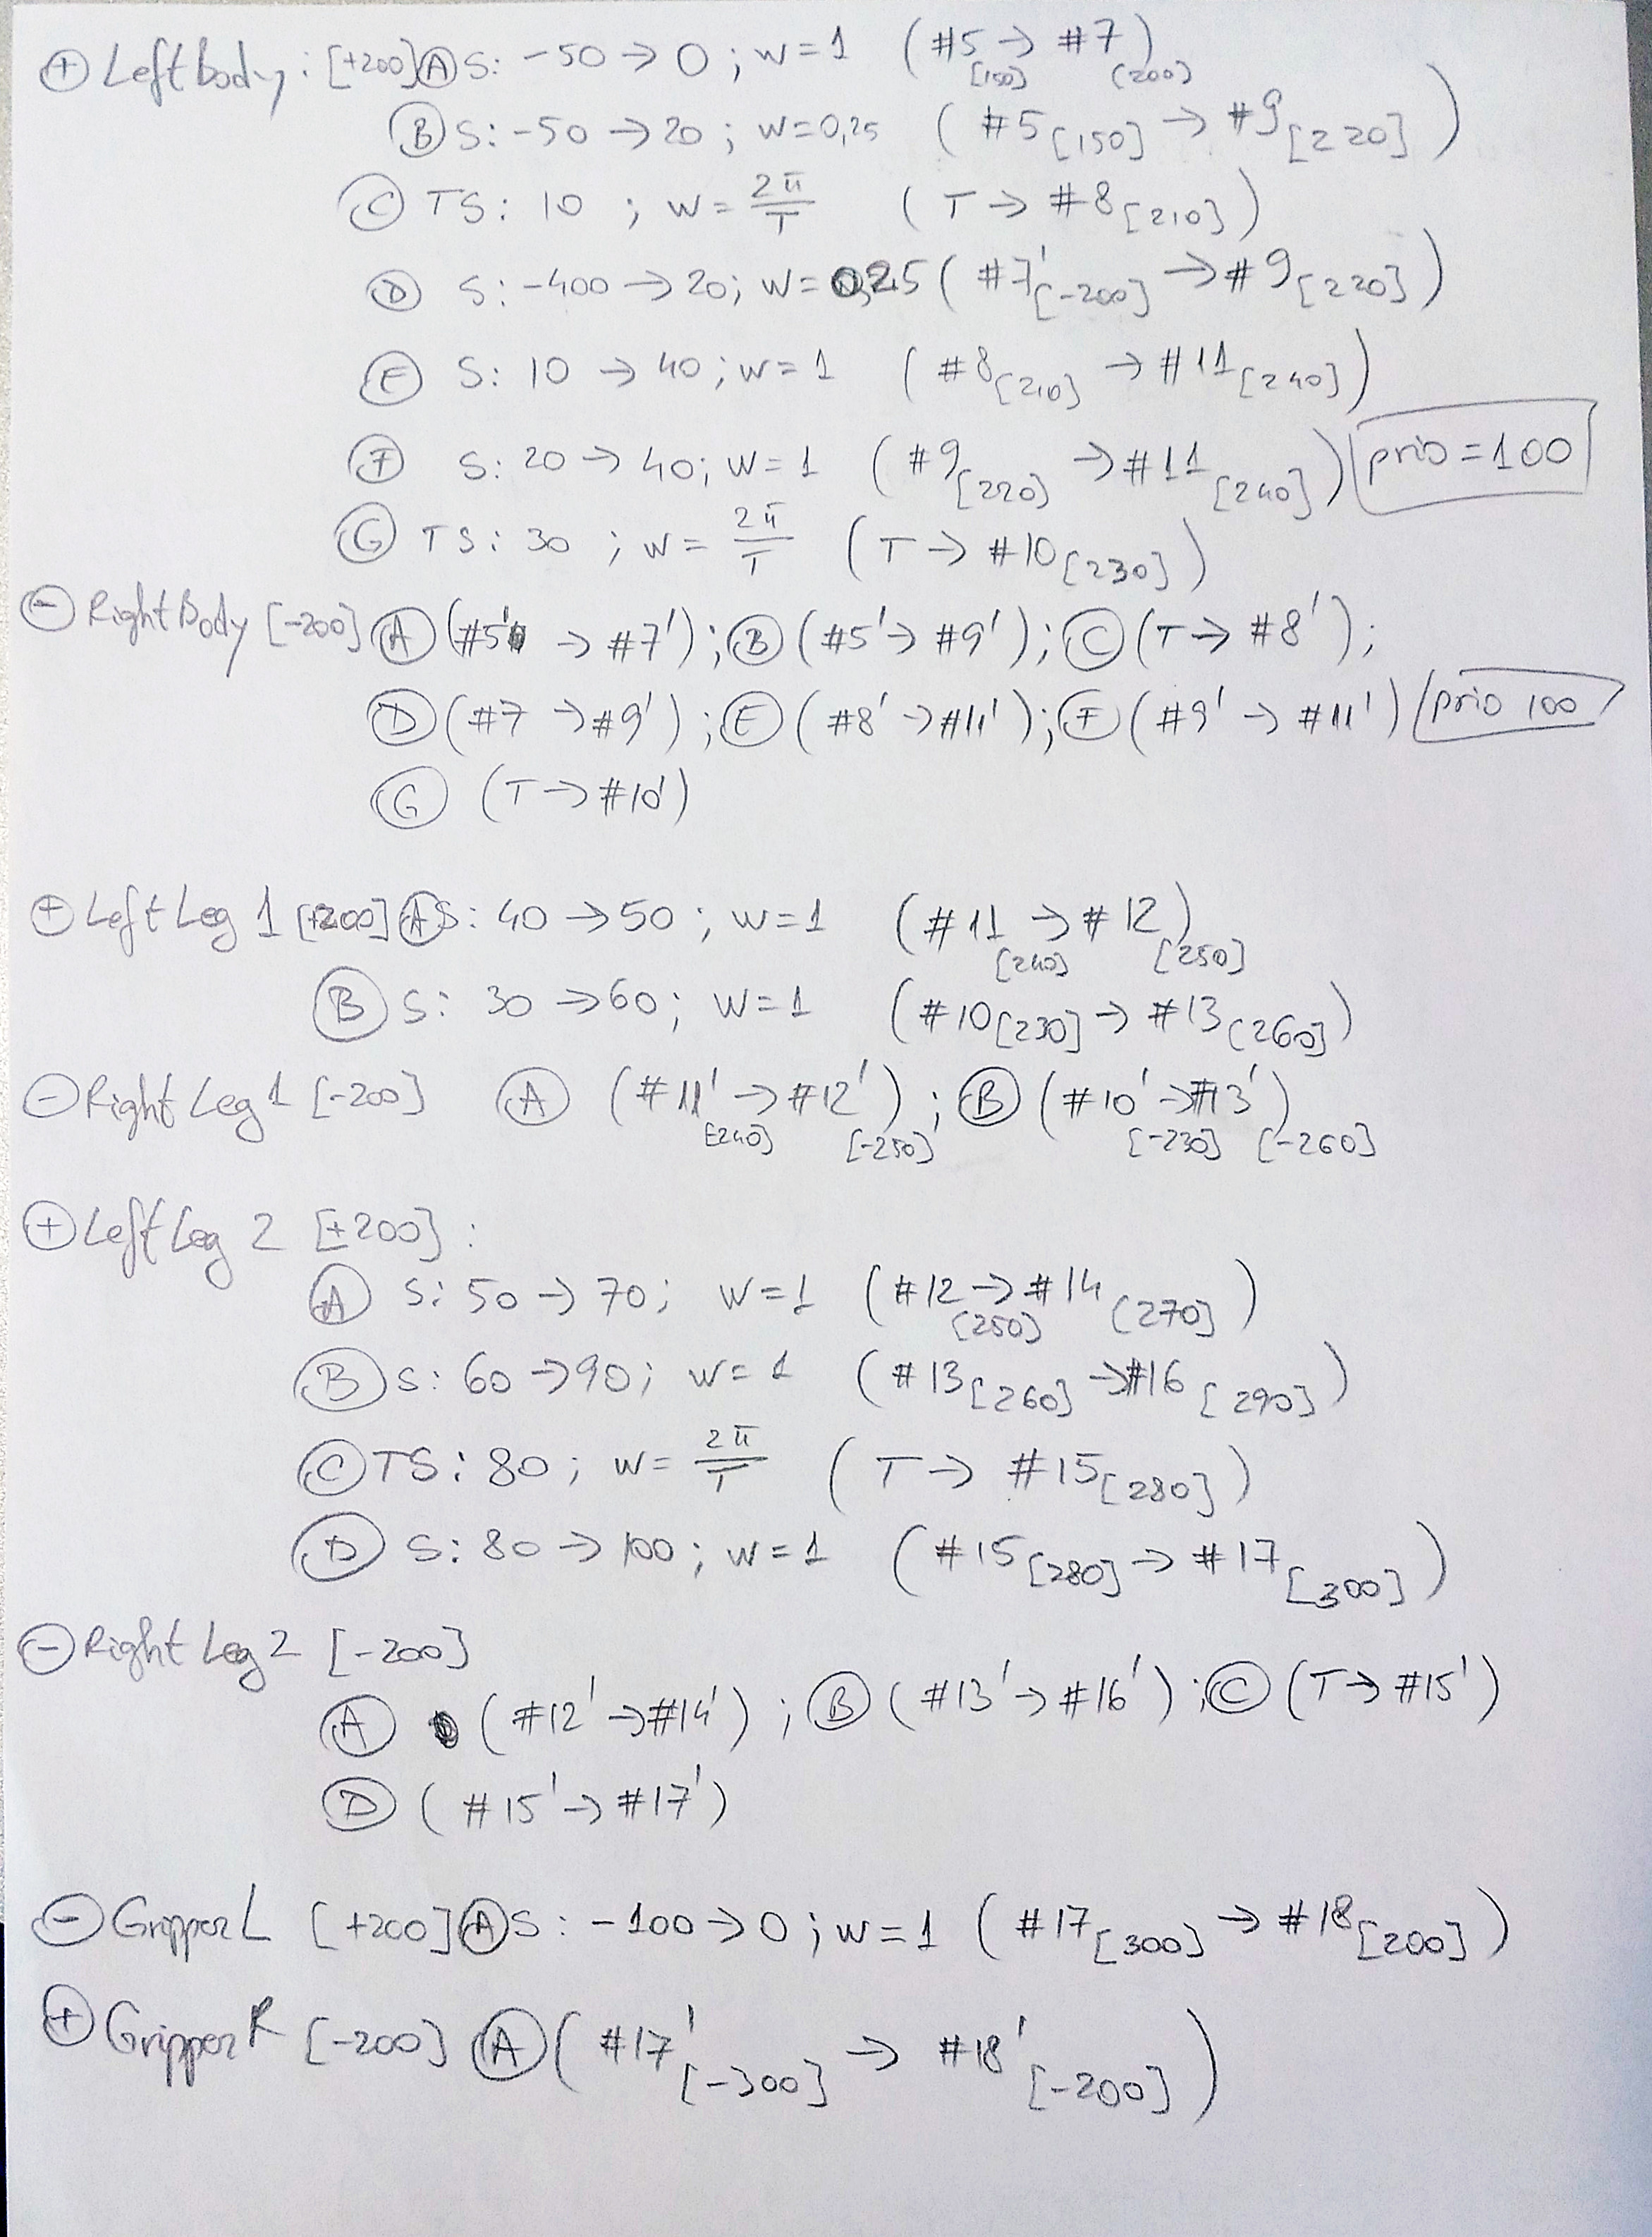 ⊕ Leftbody: [+200] Ⓐ S: -50 → 0 ; w=1 (#5[150] → #7[200])
Ⓑ S: -50 → 20 ; w=0,25 (#5[150] → #9[220])
Ⓒ TS: 10 ; w= 2π/T (T → #8[210])
Ⓓ S: -400 → 20; w=0,25 (#7'[-200] → #9[220])
Ⓔ S: 10 → 40; w=1 (#8[210] → #11[240])
Ⓕ S: 20 → 40; w=1 (#9[220] → #11[240]) prio=100
Ⓖ TS: 30 ; w= 2π/T (T → #10[230])
⊖ RightBody [-200] Ⓐ (#5' → #7'); Ⓑ (#5' → #9'); Ⓒ (T → #8');
Ⓓ (#7 → #9'); Ⓔ (#8' → #11'); Ⓕ (#9' → #11') prio 100
Ⓖ (T → #10')
⊕ Left Leg 1 [+200] Ⓐ S: 40 → 50 ; w=1 (#11[240] → #12[250])
Ⓑ S: 30 → 60; w=1 (#10[230] → #13[260])
⊖ Right Leg 1 [-200] Ⓐ (#11'[-240] → #12'[-250]); Ⓑ (#10'[-230] → #13'[-260])
⊕ Left Leg 2 [+200]:
Ⓐ S: 50 → 70; w=1 (#12[250] → #14[270])
Ⓑ S: 60 → 90; w=1 (#13[260] → #16[290])
Ⓒ TS: 80; w= 2π/T (T → #15[280])
Ⓓ S: 80 → 100; w=1 (#15[280] → #17[300])
⊖ Right Leg 2 [-200]
Ⓐ (#12' → #14'); Ⓑ (#13' → #16'); Ⓒ (T → #15')
Ⓓ (#15' → #17')
⊖ Gripper L [+200] Ⓐ S: -100 → 0; w=1 (#17[300] → #18[200])
⊕ Gripper R [-200] Ⓐ (#17'[-300] → #18'[-200])